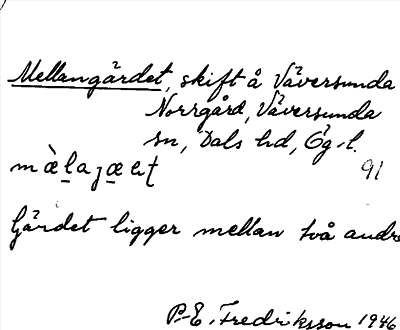 Mellangärdet, skift å Väversunda
Norrgård, Väversunda
sn, Dals hd, Ög. l.
mæ̀la̠jæet 91
Gärdet ligger mellan två andra
P.-E. Fredriksson 1946